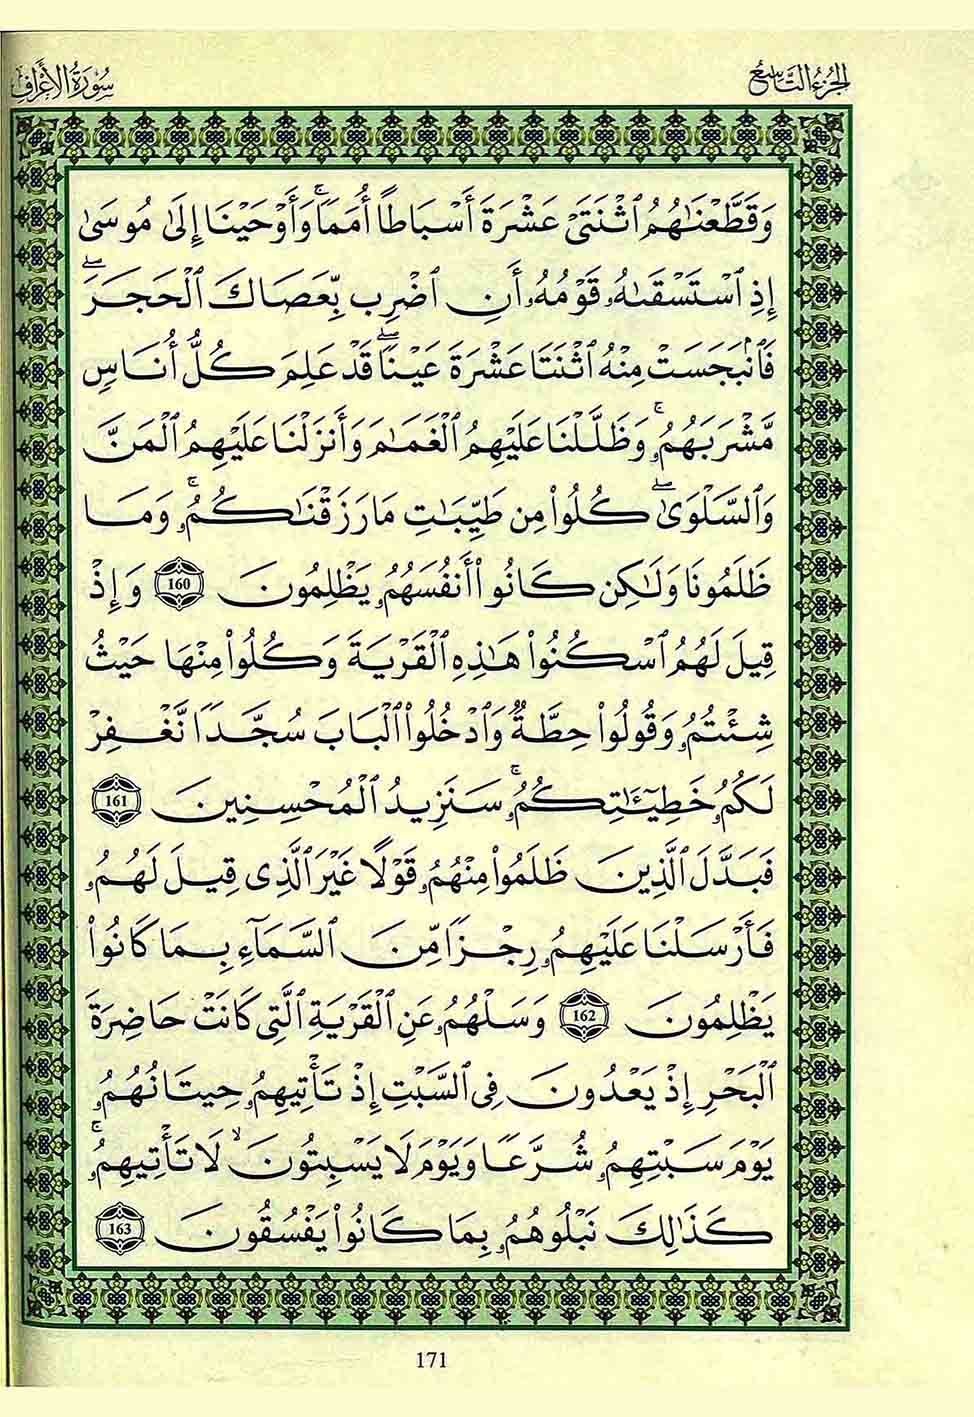 الجزء التاسع
سورة الأعراف
وَقَطَّعْنَٰهُمُ ٱثْنَتَىْ عَشْرَةَ أَسْبَاطًا أُمَمًاۚ وَأَوْحَيْنَا إِلَىٰ مُوسَىٰ
إِذِ ٱسْتَسْقَىٰهُۥ قَوْمُهُۥ أَنِ ٱضْرِب بِّعَصَاكَ ٱلْحَجَرَۖ
فَٱنۢبَجَسَتْ مِنْهُ ٱثْنَتَا عَشْرَةَ عَيْنًاۖ قَدْ عَلِمَ كُلُّ أُنَاسٍ
مَّشْرَبَهُمُۥۚ وَظَلَّلْنَا عَلَيْهِمُ ٱلْغَمَٰمَ وَأَنزَلْنَا عَلَيْهِمُ ٱلْمَنَّ
وَٱلسَّلْوَىٰۖ كُلُوا۟ مِن طَيِّبَٰتِ مَا رَزَقْنَٰكُمُۥۚ وَمَا
ظَلَمُونَا وَلَٰكِن كَانُوا۟ أَنفُسَهُمُۥ يَظْلِمُونَ 160 وَإِذْ
قِيلَ لَهُمُ ٱسْكُنُوا۟ هَٰذِهِ ٱلْقَرْيَةَ وَكُلُوا۟ مِنْهَا حَيْثُ
شِئْتُمُۥ وَقُولُوا۟ حِطَّةٌ وَٱدْخُلُوا۟ ٱلْبَابَ سُجَّدًا نَّغْفِرْ
لَكُمُۥ خَطِيٓـَٰٔتِكُمُۥۚ سَنَزِيدُ ٱلْمُحْسِنِينَ 161
فَبَدَّلَ ٱلَّذِينَ ظَلَمُوا۟ مِنْهُمُۥ قَوْلًا غَيْرَ ٱلَّذِى قِيلَ لَهُمُۥ
فَأَرْسَلْنَا عَلَيْهِمُۥ رِجْزًا مِّنَ ٱلسَّمَآءِ بِمَا كَانُوا۟
يَظْلِمُونَ 162 وَسَلْهُمُۥ عَنِ ٱلْقَرْيَةِ ٱلَّتِى كَانَتْ حَاضِرَةَ
ٱلْبَحْرِ إِذْ يَعْدُونَ فِى ٱلسَّبْتِ إِذْ تَأْتِيهِمُۥ حِيتَانُهُمُۥ
يَوْمَ سَبْتِهِمُۥ شُرَّعًا وَيَوْمَ لَا يَسْبِتُونَۙ لَا تَأْتِيهِمُۥۚ
كَذَٰلِكَ نَبْلُوهُمُۥ بِمَا كَانُوا۟ يَفْسُقُونَ 163
171